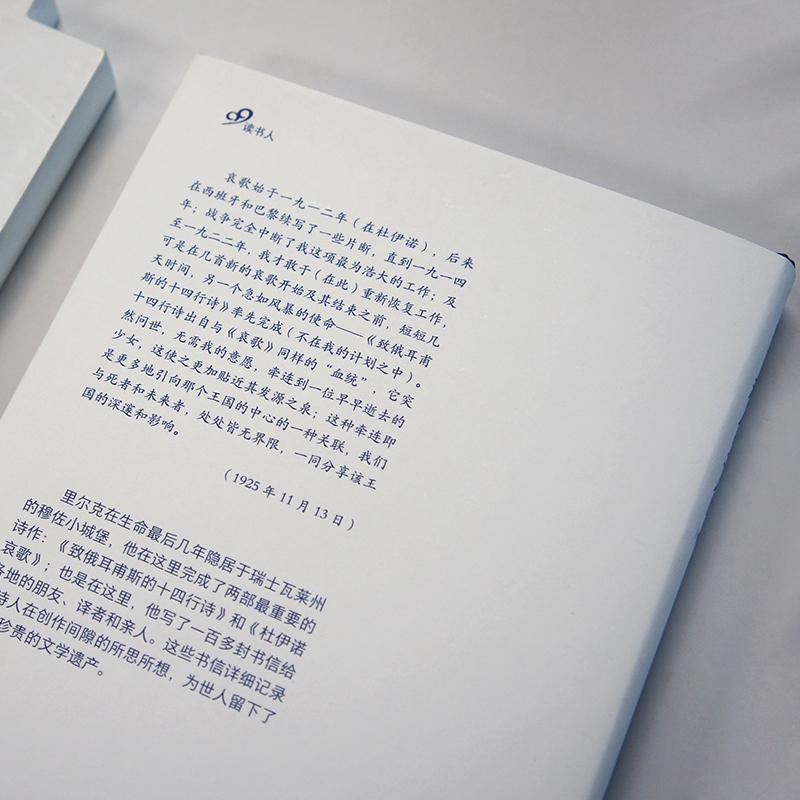 99读书人
哀歌始于一九一二年（在杜伊诺），后来
在西班牙和巴黎续写了一些片断，直到一九一四
年；战争完全中断了我这项最为浩大的工作；及
至一九二二年，我才敢于（在此）重新恢复工作，
可是在几首新的哀歌开始及其结束之前，短短几
天时间，另一个急如风暴的使命——《致俄耳甫
斯的十四行诗》率先完成（不在我的计划之中）。
十四行诗出自与《哀歌》同样的“血统”，它突
然问世，无需我的意愿，牵连到一位早早逝去的
少女，这使之更加贴近其发源之泉；这种牵连即
是更多地引向那个王国的中心的一种关联，我们
与死者和未来者，处处皆无界限，一同分享该王
国的深邃和影响。
（1925 年 11 月 13 日）
里尔克在生命最后几年隐居于瑞士瓦莱州
的穆佐小城堡，他在这里完成了两部最重要的
诗作：《致俄耳甫斯的十四行诗》和《杜伊诺
哀歌》；也是在这里，他写了一百多封书信给
各地的朋友、译者和亲人。这些书信详细记录
诗人在创作间隙的所思所想，为世人留下了
珍贵的文学遗产。